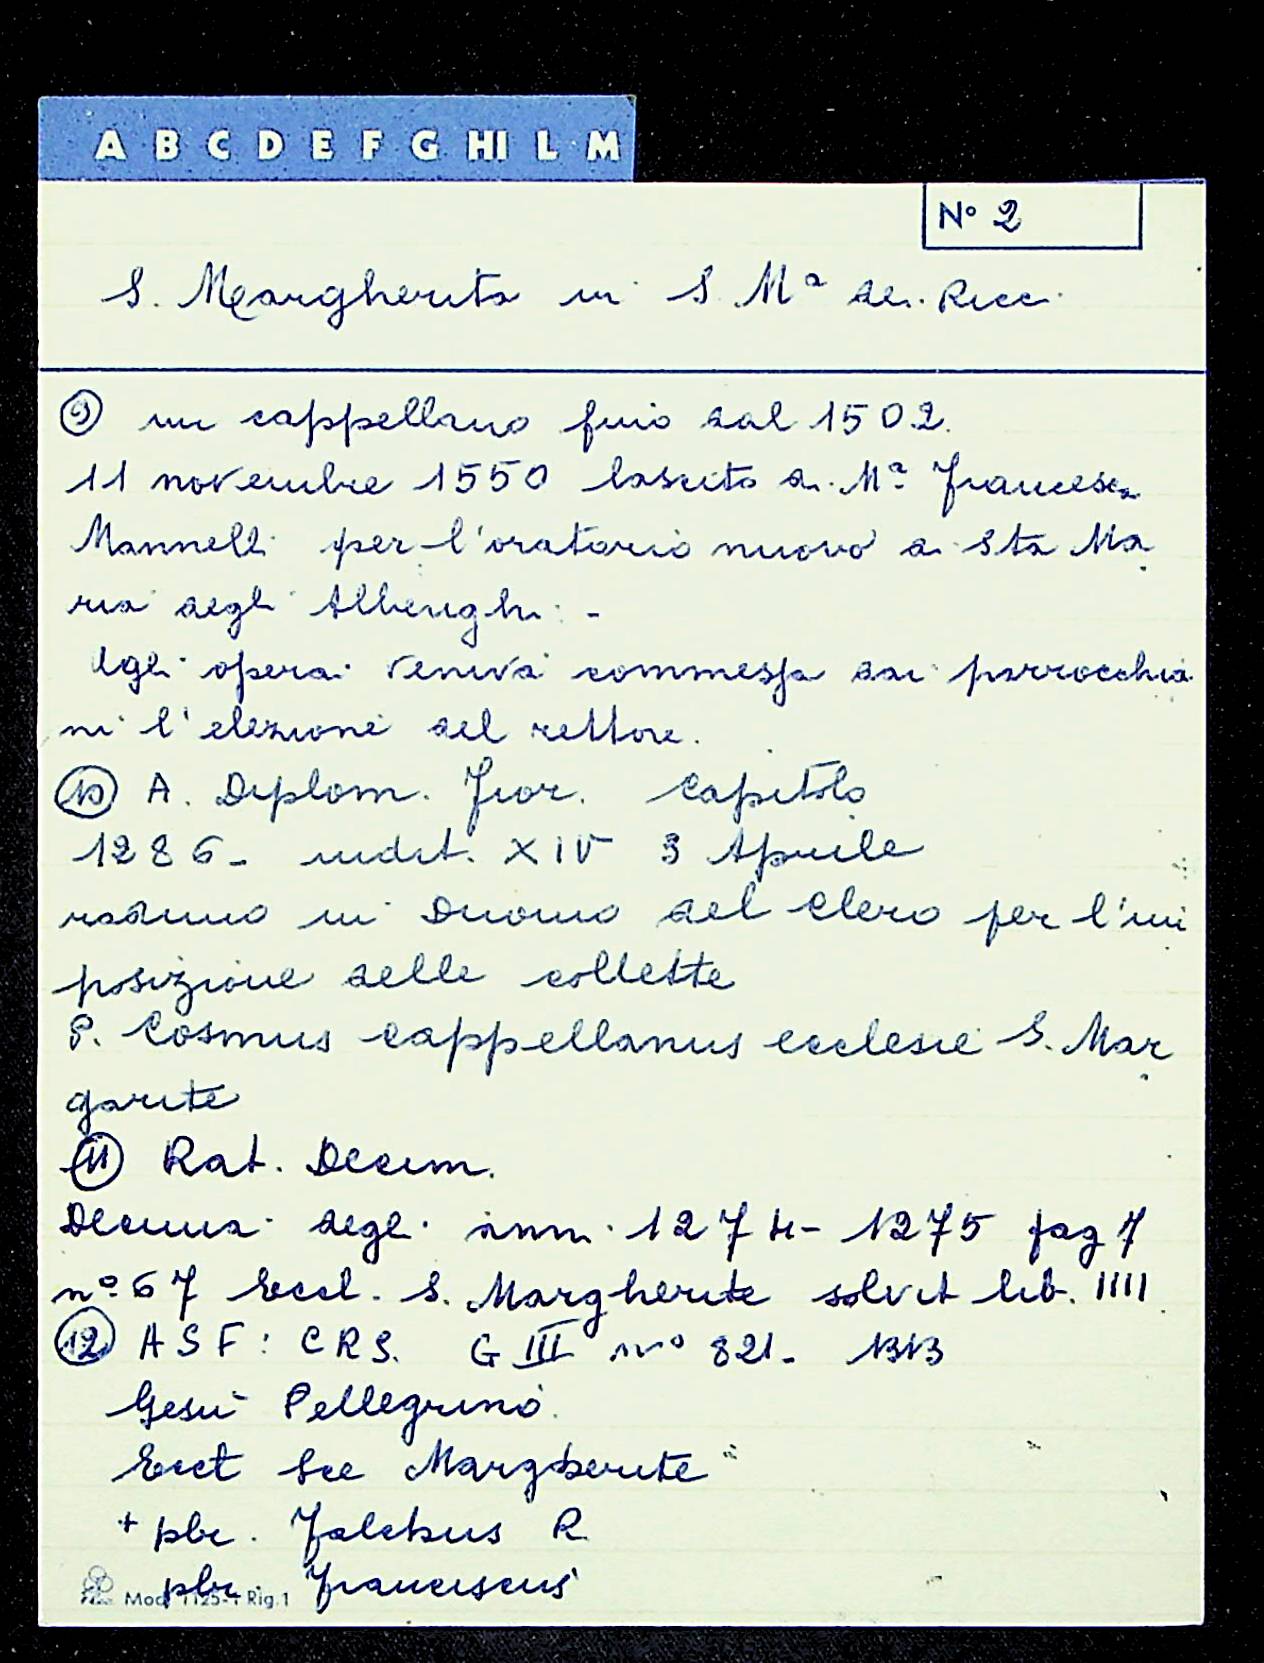 A B C D E F G HI L M
N° 2
S. Margherita in S. Mª dei Ricci
⑨ un cappellano fino dal 1502.
11 novembre 1550 lascito di Mª Francesca
Mannelli per l'oratorio nuovo di Sta Ma
ria degli Alberighi. -
Agli operai veniva commessa dai parrocchia
ni l'elezione del rettore.
⑩ A. Diplom. Fior. Capitolo
1286 - indit. XIV 3 Aprile
raduno in Duomo del Clero per l'im
posizione delle collette
P. Cosmus cappellanus ecclesie S. Mar
garite
⑪ Rat. Decim.
Decima degli anni 1274 - 1275 pag 7
nº 67 Eccl. S. Margherite solvit lib. IIII
⑫ ASF: CRS. G III nº 821 - 1313
Gesù Pellegrino
Eccl Sce Margherite
+ pbr. Falchus R
pbr. Franciscus
Mod. 1125-1 Rig.1